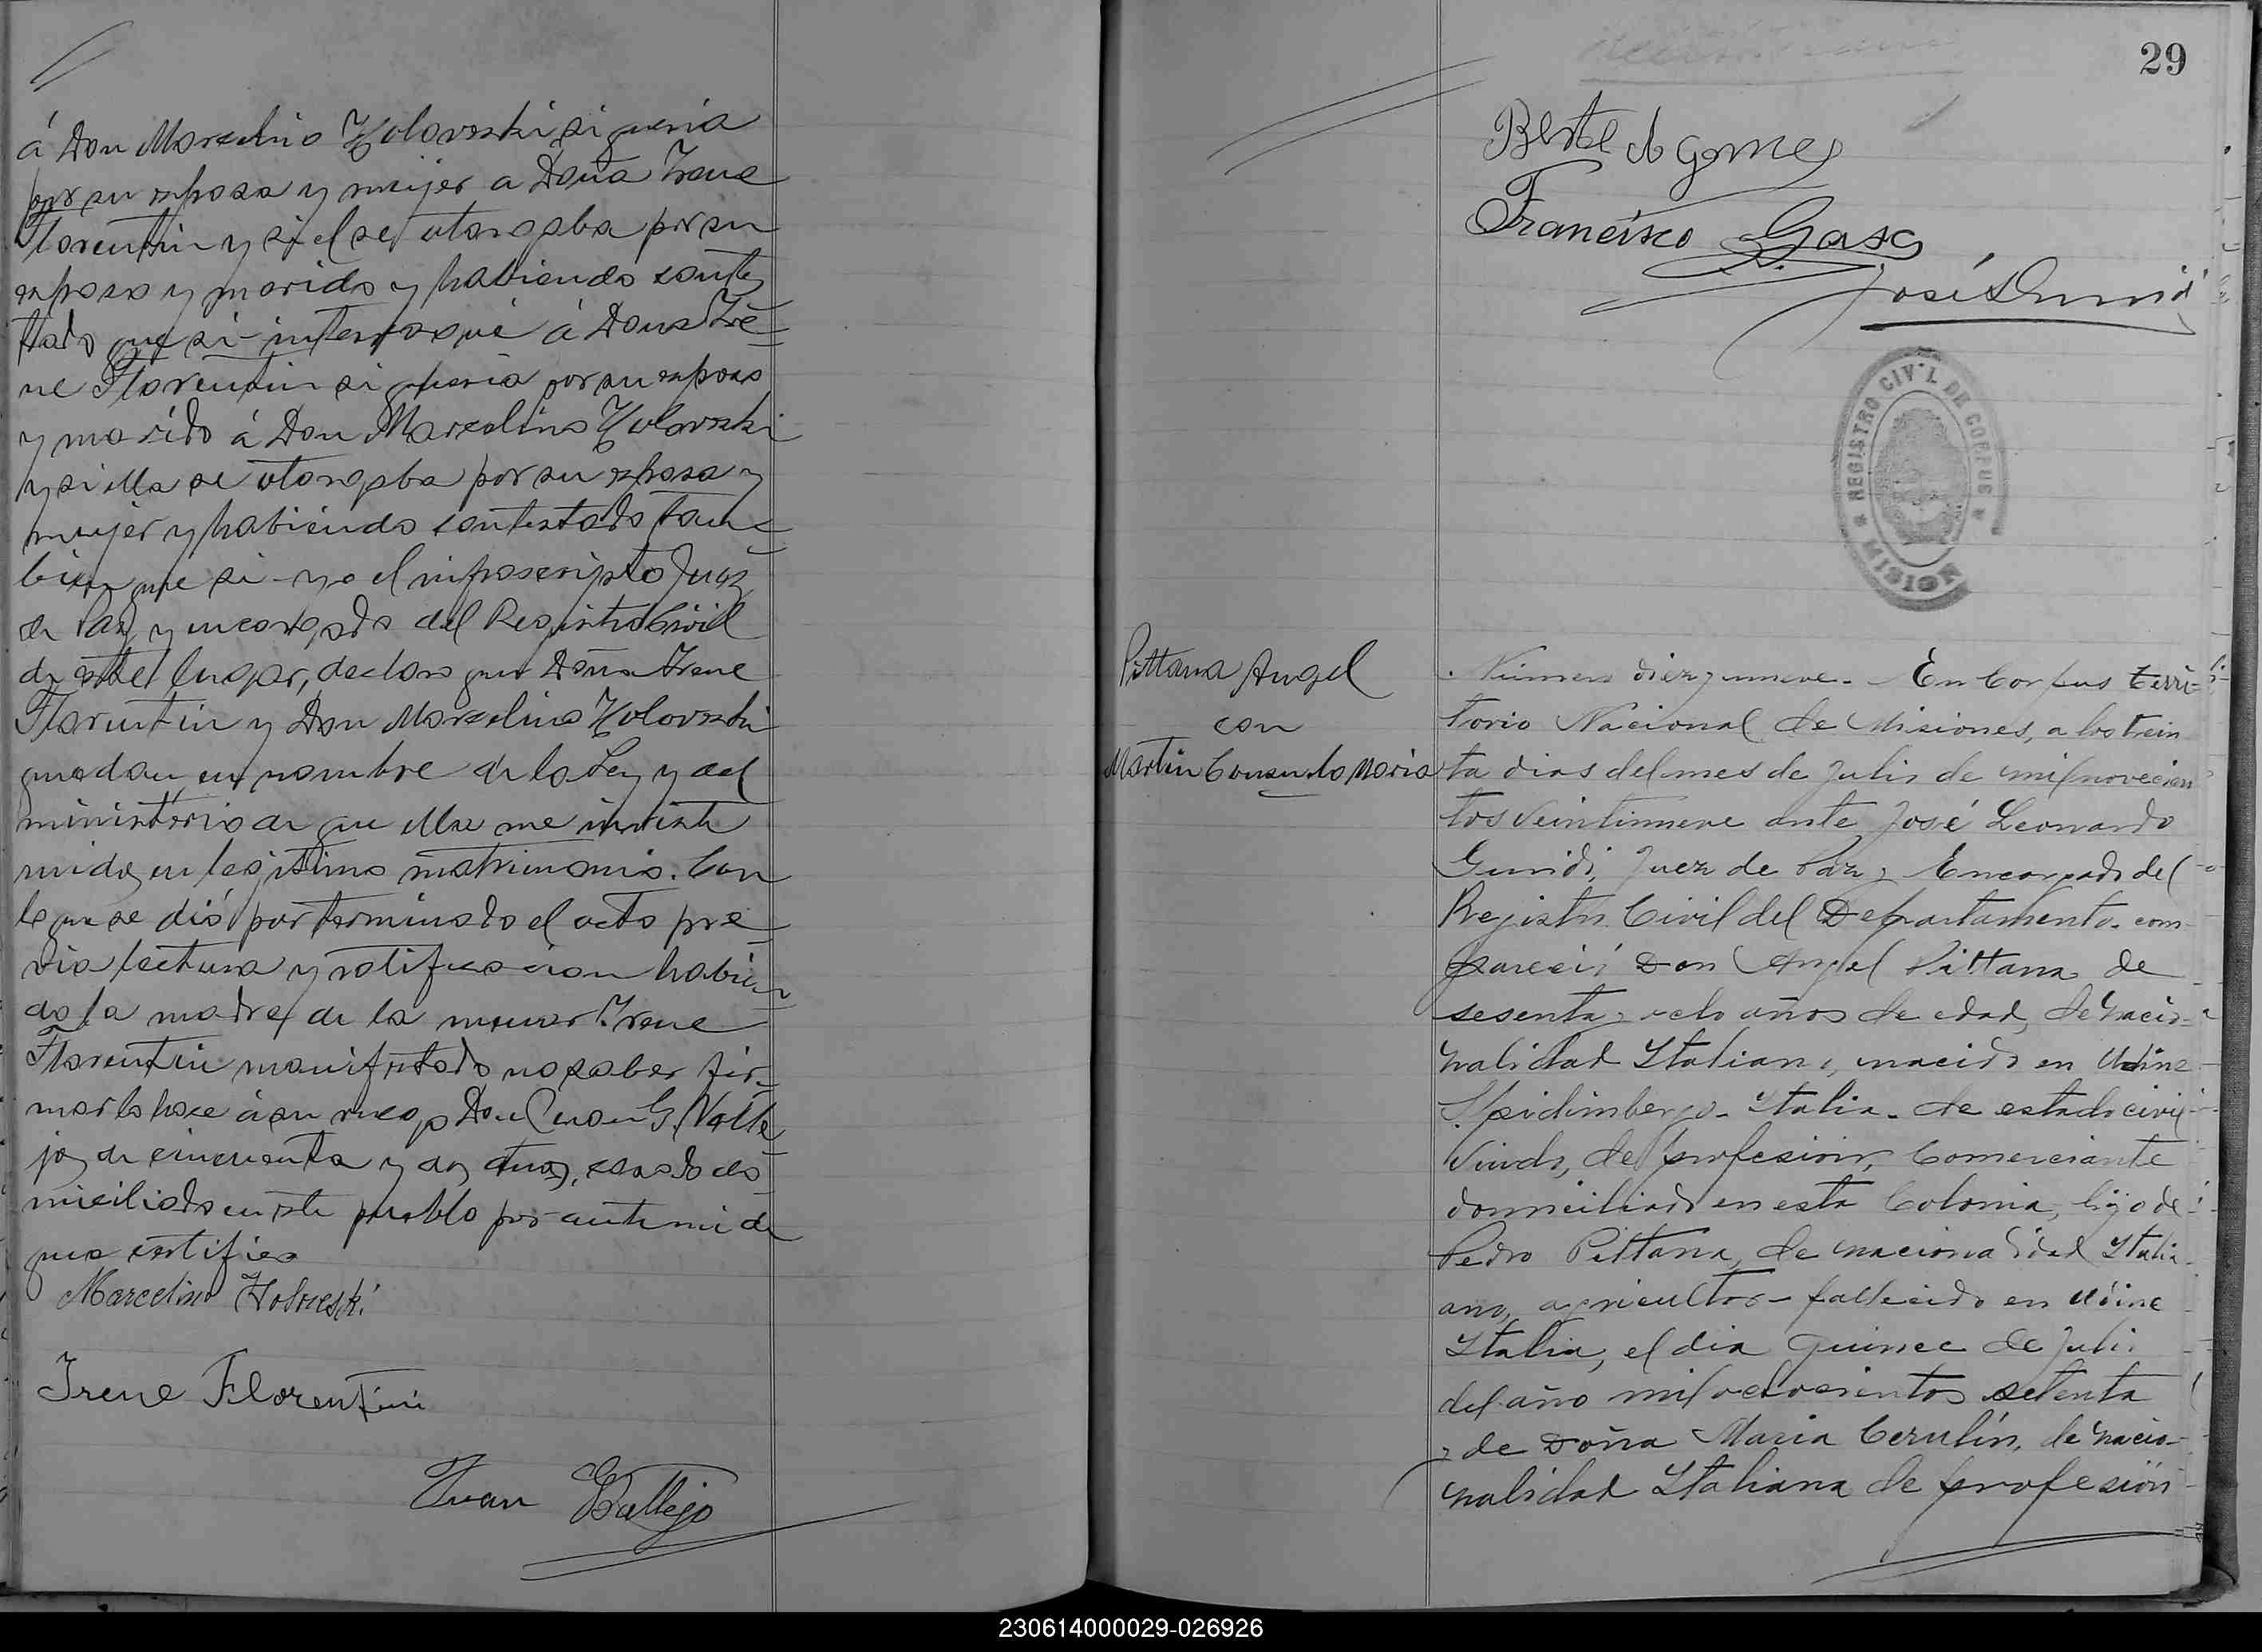 á Don Marcelino Holoveski si queria
por su esposa y mujer a Doña Irene
Florentin y si el se otorgaba por su
esposo y marido y habiendo contes
tado que si interrogué á Dona Ire
ne Florentin si queria por su esposo
y marido á Don Marcelino Holovski
y si ella se otorgaba por su esposa y
mujer y habiendo contestado tam
bien que si yo el infrascripto Juez
de Paz y encargado del Registro Civil
de este lugar, declaro que Doña Irene
Florentin y Don Marcelino Holovski
quedan en nombre de la Ley y del
ministerio de que ella me inviste
unidos en legitimo matrimonio. Con
lo que se dió por terminado el acto pre
via lectura y ratificacion habien
do la madre de la menor Irene
Florentin manifestado no saber fir
mar lo hace á su ruego Don Juan G. Valle
jos de cincuenta y dos años, casado do
miciliado en este pueblo por ante mi de
que certifico
Marcelino Holoveski
Irene Florentin
Juan G Vallejo
29
A Gomez
Francisco Gasc
José Gunidi
REGISTRO CIVIL DE CORPUS
MISION
Pittana Angel
con
Martin Consuelo Maria
Número diez y nueve. En Corpus terri=
torio Nacional de Misiones, a los trein
ta dias del mes de Julio de mil novecien
tos veintinueve ante José Leonardo
Gunidi, Juez de Paz y Encargado del
Registro Civil del Departamento. com-
pareció Don Angel Pittana de
sesenta y ocho años de edad, de nacio-
nalidad Italiana, nacido en Udine
Spidimbergo. Italia. de estado civil
viudo, de profesión Comerciante
domiciliado en esta Colonia, hijo de
Pedro Pittana, de nacionalidad Itali-
ano, agricultor - fallecido en Udine
Italia, el dia quince de Julio
del año mil ochocientos setenta
y de Doña Maria Cerulín, de nacio-
nalidad Italiana de profesión
230614000029-026926